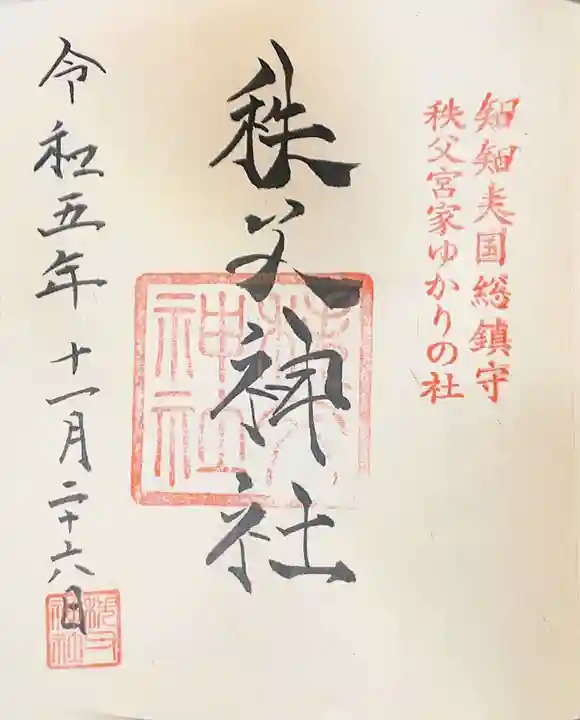 知知夫国総鎮守
秩父宮家ゆかりの社
秩父神社
秩父神社
令和五年十一月二十六日
秩父神社